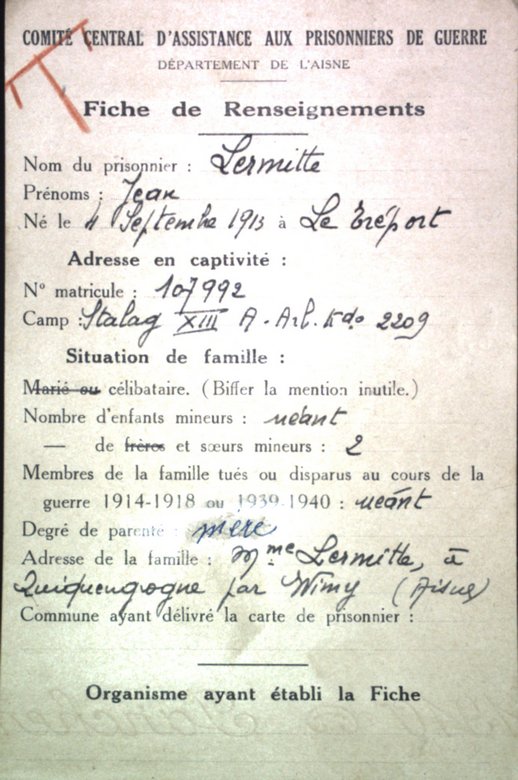 COMITÉ CENTRAL D'ASSISTANCE AUX PRISONNIERS DE GUERRE
DÉPARTEMENT DE L'AISNE
Fiche de Renseignements
Nom du prisonnier : Lermitte
Prénoms : Jean
Né le 4 Septembre 1913 à Le Tréport
Adresse en captivité :
N° matricule : 107992
Camp : Stalag XIII A - Arb. Kdo 2209
Situation de famille :
Marié ou célibataire. (Biffer la mention inutile.)
Nombre d'enfants mineurs : néant
— de frères et sœurs mineurs : 2
Membres de la famille tués ou disparus au cours de la
guerre 1914-1918 ou 1939-1940 : néant
Degré de parenté : mère
Adresse de la famille : Mme Lermitte, à
Quiquengrogne par Wimy (Aisne)
Commune ayant délivré la carte de prisonnier :
Organisme ayant établi la Fiche